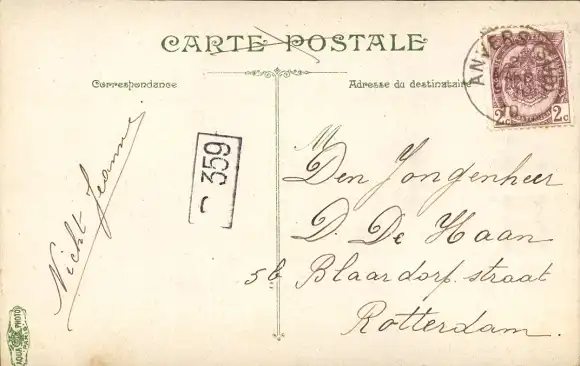 CARTE POSTALE
Correspondance
Adresse du destinataire
ANVERS
2c 2c
359
Nicht Jeanne
M
Den Jongenheer
D. De Haan
56 Blaardorf. straat
Rotterdam.
AQUA PHOTO
PARIS